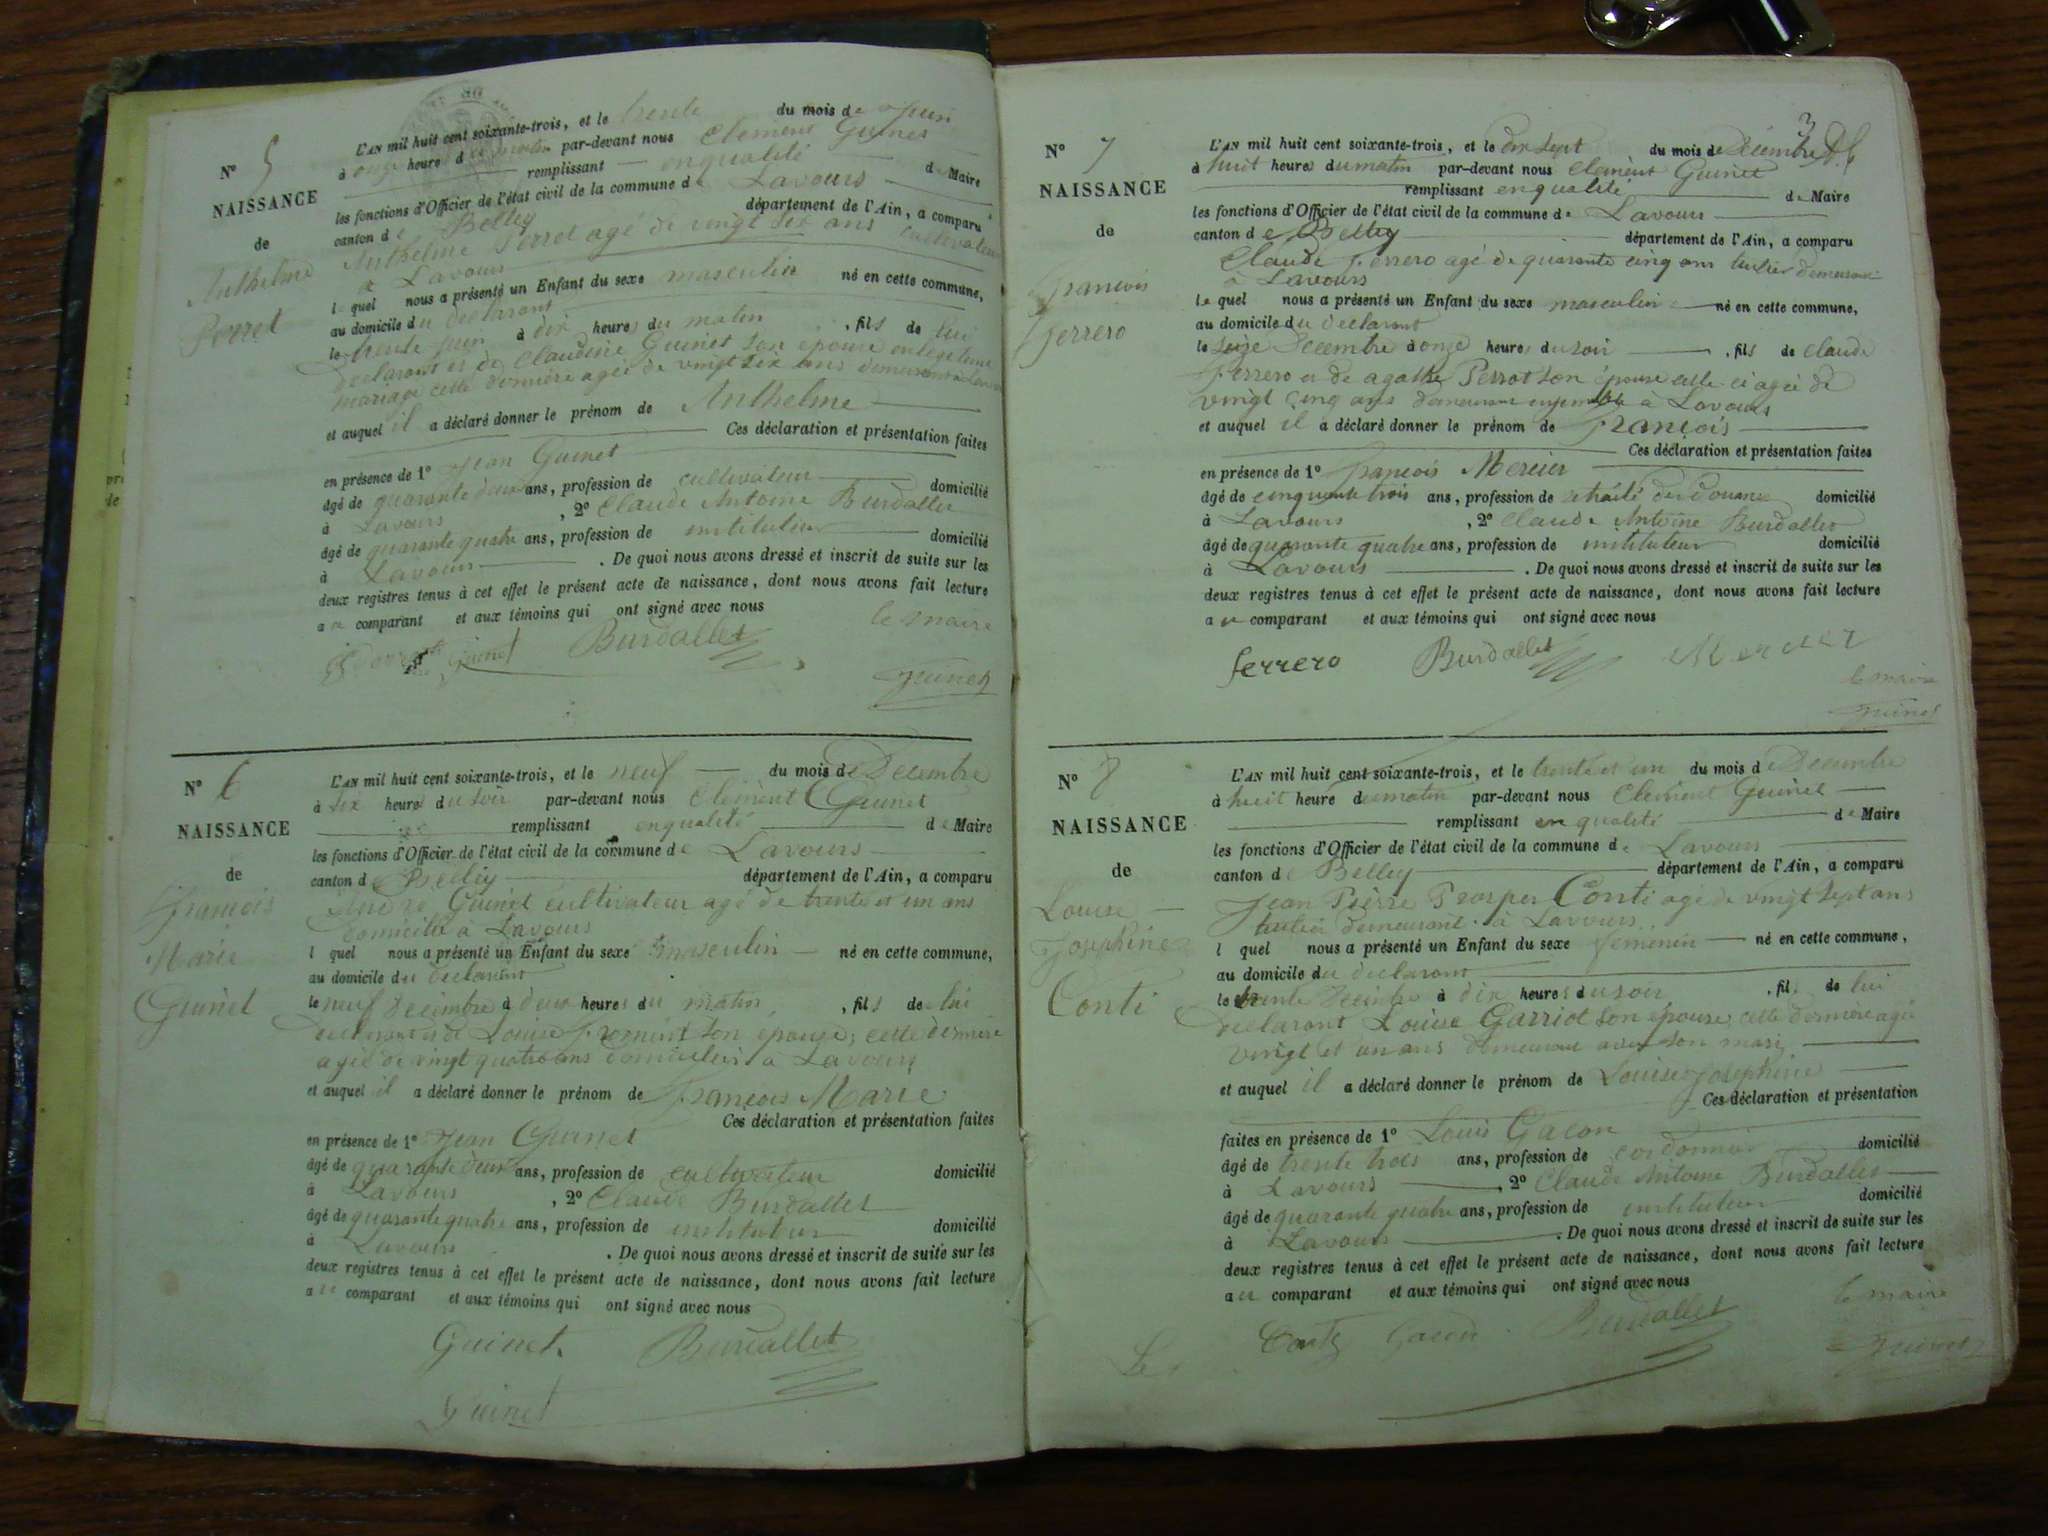 N° 5
NAISSANCE
de
Anthelme
Perret
L'AN mil huit cent soixante-trois, et le trente du mois de Juin
à onze heure d du matin par-devant nous Clement Guinet
remplissant en qualité de Maire
les fonctions d'Officier de l'état civil de la commune de Lavours
canton de Belley département de l'Ain, a comparu
Anthelme Perret agé de vingt six ans cultivateur
a Lavours
le quel nous a présenté un Enfant du sexe masculin né en cette commune,
au domicile du declarant
le trente juin à dix heures du matin , fils de lui
declarant et de Claudine Guinet son epouse en legitime
mariage cette derniere agée de vingt six ans demeurant a Lavours
et auquel il a déclaré donner le prénom de Anthelme
Ces déclaration et présentation faites
en présence de 1° Jean Guinet
âgé de quarante deux ans, profession de cultivateur domicilié
à Lavours , 2° Claude Antoine Burdallet
âgé de quarante quatre ans, profession de instituteur domicilié
à Lavours . De quoi nous avons dressé et inscrit de suite sur les
deux registres tenus à cet effet le présent acte de naissance, dont nous avons fait lecture
au comparant et aux témoins qui ont signé avec nous
le maire
Guinet Burdallet
Guinet
N° 6
NAISSANCE
de
François
Marie
Guinet
L'AN mil huit cent soixante-trois, et le neuf du mois de Decembre
à six heures du soir par-devant nous Clement Guinet
remplissant en qualité de Maire
les fonctions d'Officier de l'état civil de la commune de Lavours
canton de Belley département de l'Ain, a comparu
André Guinet cultivateur agé de trente et un ans
domicilié a Lavours
l quel nous a présenté un Enfant du sexe masculin né en cette commune,
au domicile du declarant
le neuf Decembre à deux heures du matin , fils de lui
declarant et de Louise son epouse, cette derniere
agée de vingt quatre ans domiciliés a Lavours
et auquel il a déclaré donner le prénom de François Marie
Ces déclaration et présentation faites
en présence de 1° Jean Guinet
âgé de quarante deux ans, profession de cultivateur domicilié
à Lavours , 2° Claude Burdallet
âgé de quarante quatre ans, profession de instituteur domicilié
à Lavours . De quoi nous avons dressé et inscrit de suite sur les
deux registres tenus à cet effet le présent acte de naissance, dont nous avons fait lecture
au comparant et aux témoins qui ont signé avec nous
Guinet Burdallet
Guinet
3
N° 7
NAISSANCE
de
François
ferrero
L'AN mil huit cent soixante-trois, et le dix sept du mois de Décembre
à huit heures du matin par-devant nous Clement Guinet
remplissant en qualité de Maire
les fonctions d'Officier de l'état civil de la commune de Lavours
canton de Belley département de l'Ain, a comparu
Claude ferrero agé de quarante cinq ans tuilier demeurant
a Lavours
le quel nous a présenté un Enfant du sexe masculin né en cette commune,
au domicile du declarant
le seize Decembre à onze heures du soir , fils de Claude
ferrero et de agathe Perrot son épouse celle ci agée de
vingt cinq ans demeurant ensemble a Lavours
et auquel il a déclaré donner le prénom de François
Ces déclaration et présentation faites
en présence de 1° françois Mercier
âgé de cinquante trois ans, profession de retraité des douanes domicilié
à Lavours , 2° Claude Antoine Burdallet
âgé de quarante quatre ans, profession de instituteur domicilié
à Lavours . De quoi nous avons dressé et inscrit de suite sur les
deux registres tenus à cet effet le présent acte de naissance, dont nous avons fait lecture
au comparant et aux témoins qui ont signé avec nous
ferrero Burdallet Mercier
le maire
Guinet
N° 8
NAISSANCE
de
Louise
Josephine
Conti
L'AN mil huit cent soixante-trois, et le trente et un du mois de Decembre
à huit heure du matin par-devant nous Clement Guinet
remplissant en qualité de Maire
les fonctions d'Officier de l'état civil de la commune de Lavours
canton de Belley département de l'Ain, a comparu
Jean Pierre Prosper Conti agé de vingt sept ans
tuilier demeurant a Lavours
l quel nous a présenté un Enfant du sexe femenin né en cette commune,
au domicile du declarant
le trente Decembre à dix heures du soir , fil de lui
declarant Louise Garriot son epouse, cette derniere agée
vingt et un ans demeurant avec son mari
et auquel il a déclaré donner le prénom de Louise Josephine
Ces déclaration et présentation
faites en présence de 1° Louis Gacon
âgé de trente trois ans, profession de cordonnier domicilié
à Lavours , 2° Claude Antoine Burdallet
âgé de quarante quatre ans, profession de instituteur domicilié
à Lavours . De quoi nous avons dressé et inscrit de suite sur les
deux registres tenus à cet effet le présent acte de naissance, dont nous avons fait lecture
au comparant et aux témoins qui ont signé avec nous
le maire
Conti Gacon Burdallet
Guinet